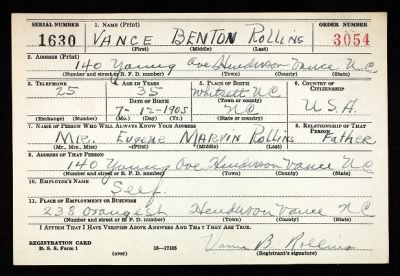 SERIAL NUMBER 1. NAME (Print) ORDER NUMBER
1630 VANCE BENTON ROLLINS 3054
(First) (Middle) (Last)
2. ADDRESS (Print)
140 Young Ave Henderson Vance N C
(Number and street or R. F. D. number) (Town) (County) (State)
3. TELEPHONE 4. AGE IN YEARS 5. PLACE OF BIRTH 6. COUNTRY OF CITIZENSHIP
25 35 Whitsett N.C.
DATE OF BIRTH (Town or county)
7-12-1905 NC U.S.A.
(Exchange) (Number) (Mo.) (Day) (Yr.) (State or country)
7. NAME OF PERSON WHO WILL ALWAYS KNOW YOUR ADDRESS 8. RELATIONSHIP OF THAT PERSON
MR. Eugene MARVIN Rollins Father
(Mr., Mrs., Miss) (First) (Middle) (Last)
9. ADDRESS OF THAT PERSON
140 Young Ave Henderson Vance N C
(Number and street or R. F. D. number) (Town) (County) (State)
10. EMPLOYER'S NAME
Self
11. PLACE OF EMPLOYMENT OR BUSINESS
238 Henderson Vance N C
(Number and street or R. F. D. number) (Town) (County) (State)
I AFFIRM THAT I HAVE VERIFIED ABOVE ANSWERS AND THAT THEY ARE TRUE.
REGISTRATION CARD
D. S. S. Form 1 16—17105 Vance B Rollins
(over) (Registrant's signature)